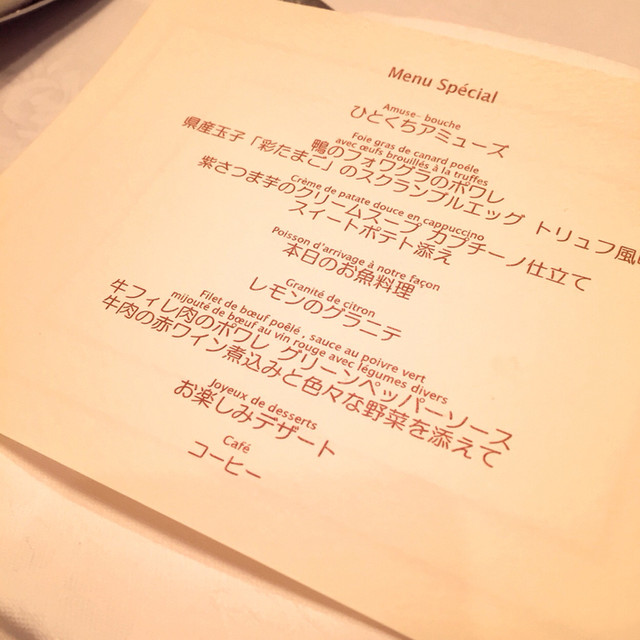 Menu Spécial
Amuse- bouche
ひとくちアミューズ
Foie gras de canard poêle
avec œufs brouillés à la truffes
鴨のフォワグラのポワレ
県産玉子「彩たまご」のスクランブルエッグ トリュフ風味
Crème de patate douce en cappuccino
紫さつま芋のクリームスープ カプチーノ仕立て
スイートポテト添え
Poisson d'arrivage à notre façon
本日のお魚料理
Granité de citron
レモンのグラニテ
Filet de bœuf poêlé , sauce au poivre vert
mijouté de bœuf au vin rouge avec légumes divers
牛フィレ肉のポワレ グリーンペッパーソース
牛肉の赤ワイン煮込みと色々な野菜を添えて
Joyeux de desserts
お楽しみデザート
Café
コーヒー